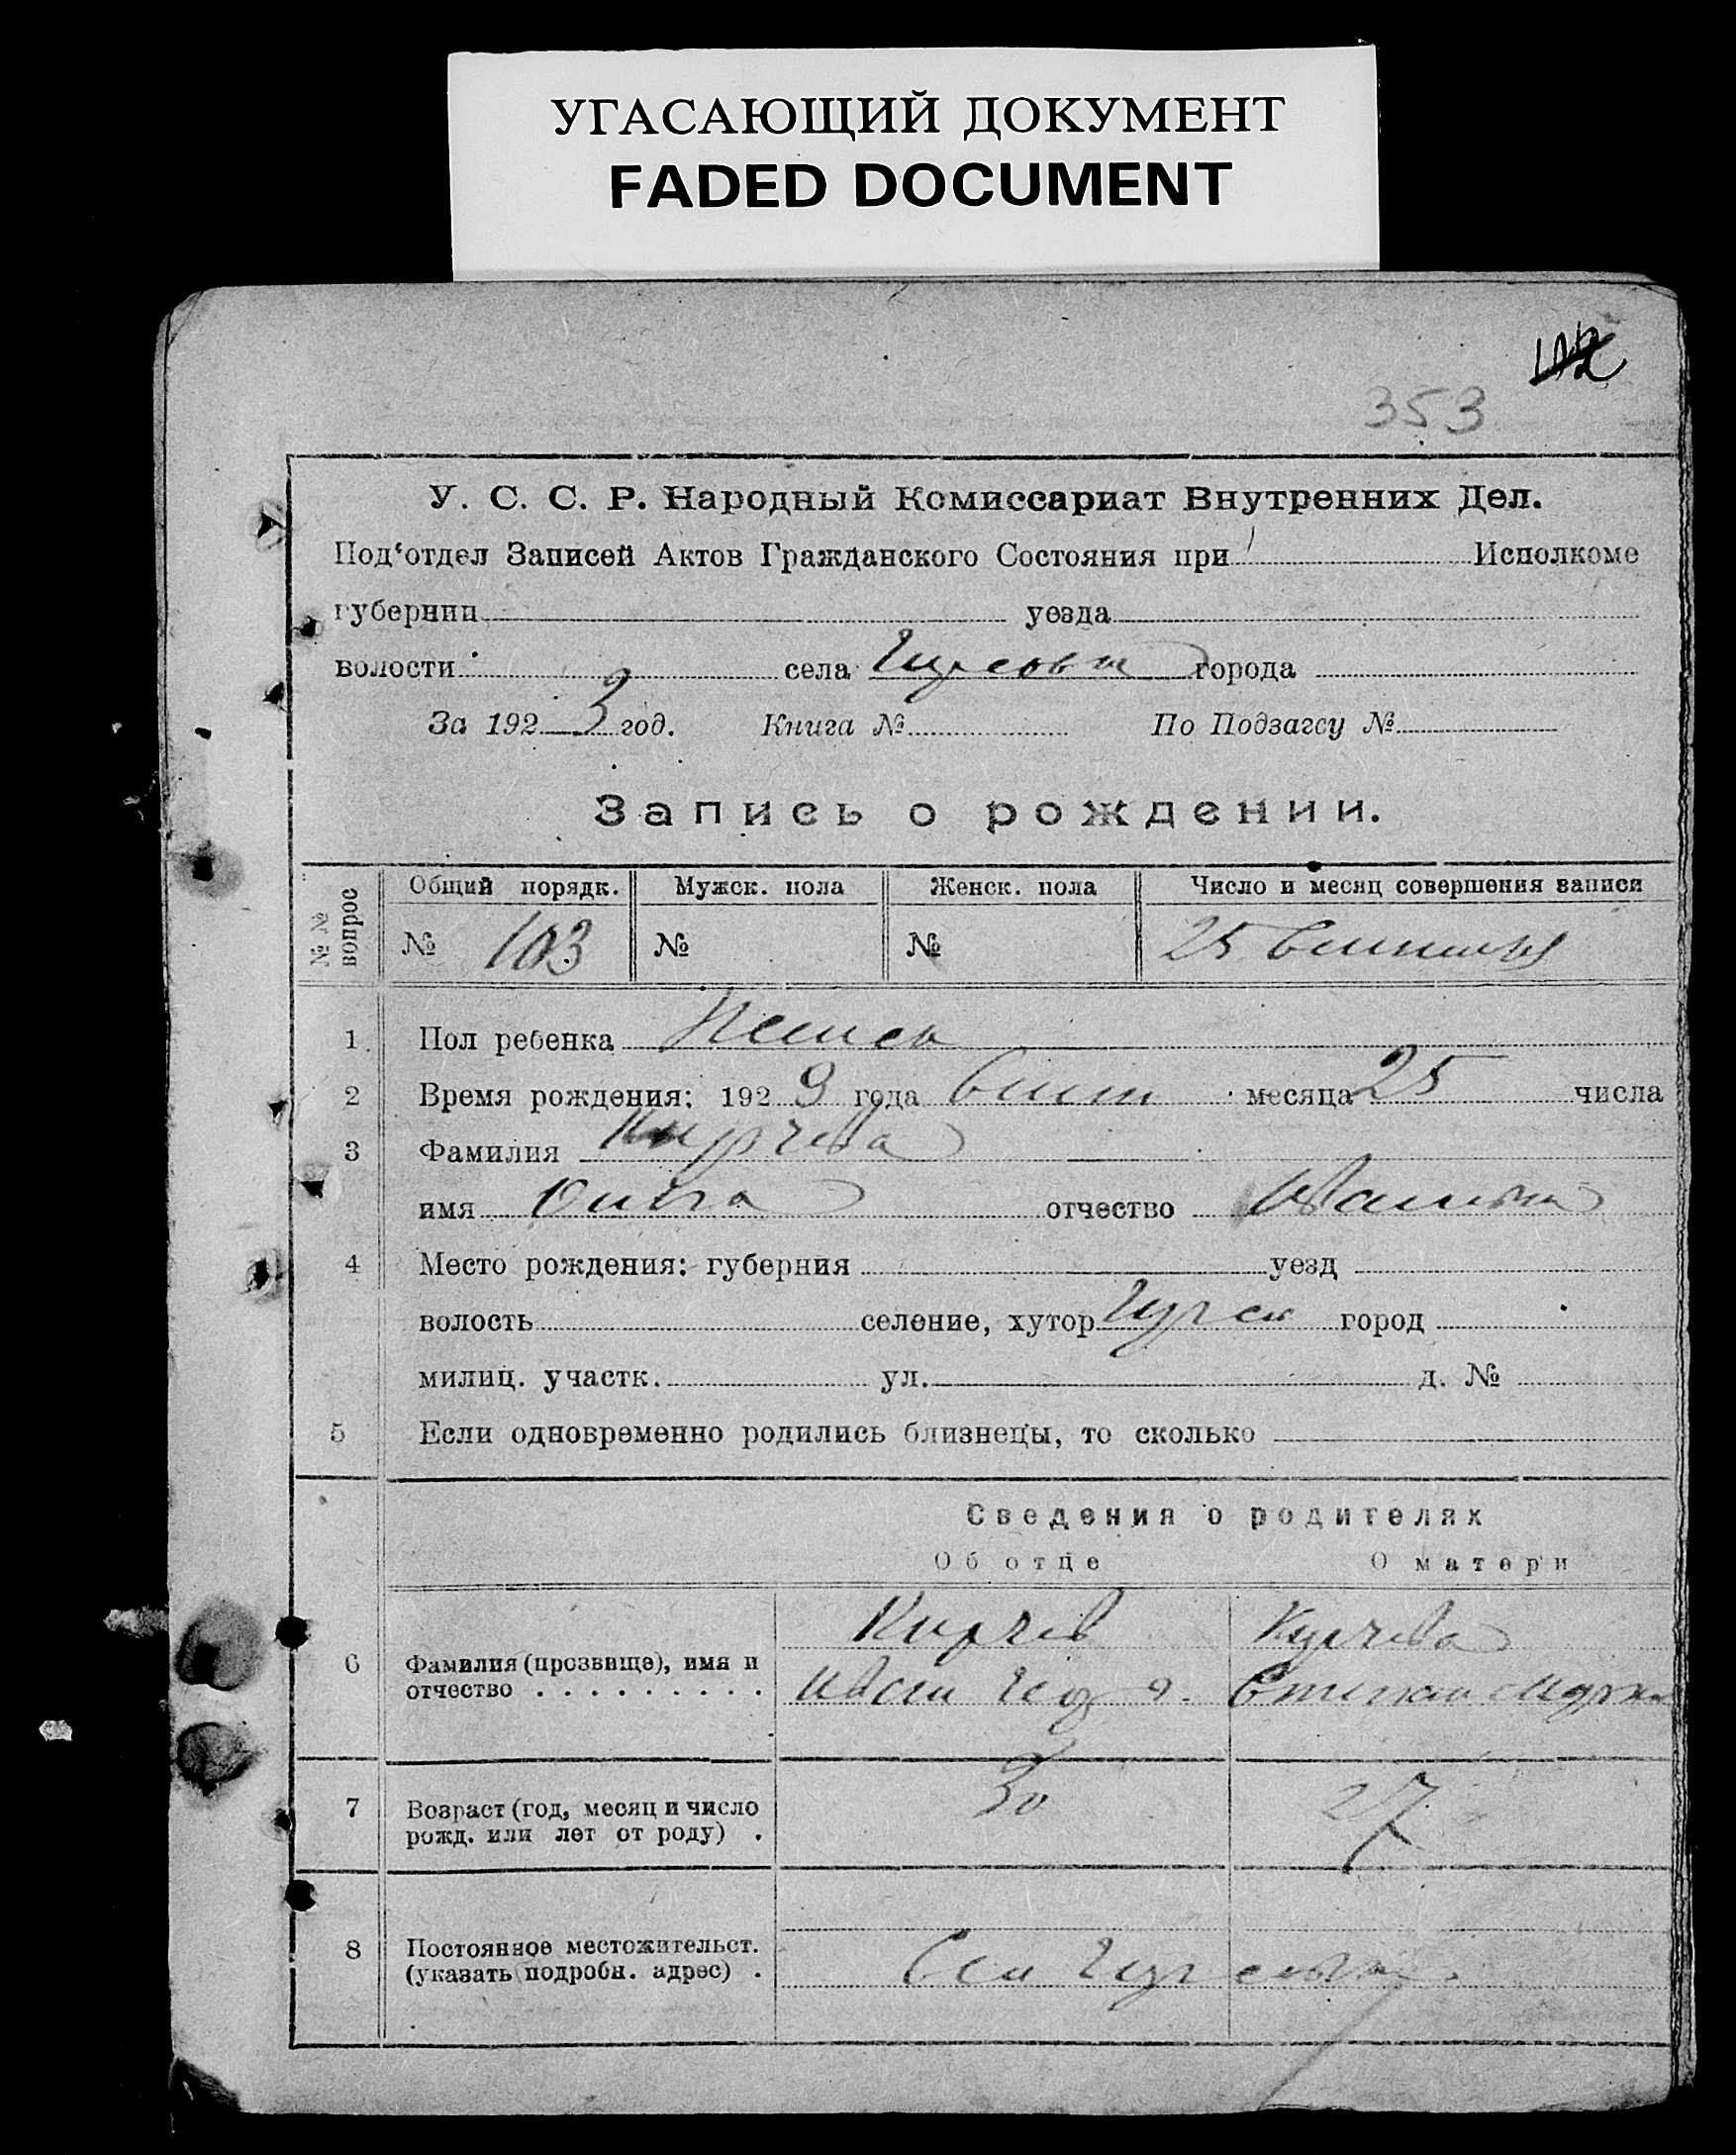 УГАСАЮЩИЙ ДОКУМЕНТ
FADED DOCUMENT
353
У. С. С. Р. Народный Комиссариат Внутренних Дел.
Под‘отдел Записей Актов Гражданского Состояния при Исполкоме
губернии уезда
волости села города
За 192 3 год. Книга № По Подзагсу №
Запись о рождении.
№ № вопрос
Общий порядк. Мужск. пола Женск. пола Число и месяц совершения записи
№ 103 № № 25
1 Пол ребенка
2 Время рождения: 192 3 года месяца 25 числа
3 Фамилия Кирчева
имя отчество
4 Место рождения: губерния уезд
волость селение, хутор город
милиц. участк. ул. д. №
5 Если одновременно родились близнецы, то сколько
Сведения о родителях
Об отце О матери
Кирчев Кирчева
6 Фамилия (прозвище), имя и
отчество . . . . . . . . .
7 Возраст (год, месяц и число
рожд. или лет от роду) . 30 27
8 Постоянное местожительст.
(указать подробн. адрес) .